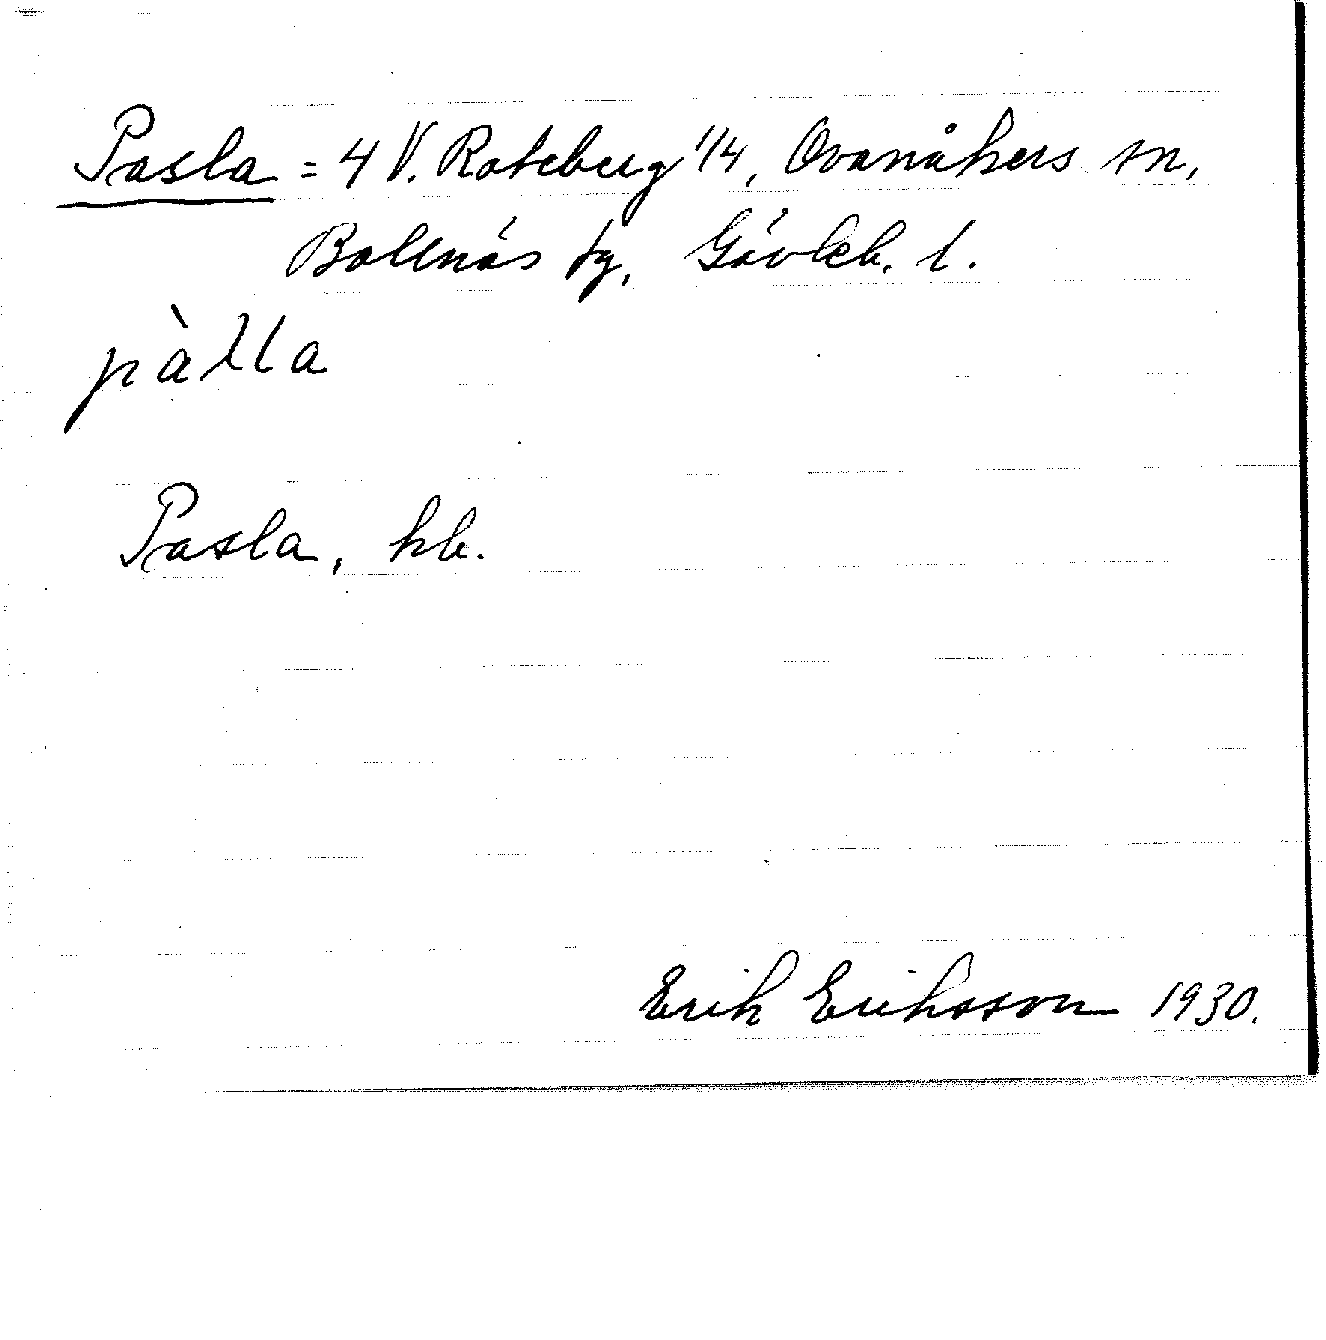 Pasla = 4 V. Roteberg 1/4, Ovanåkers sn,
Bollnäs tg, Gävleb. l.
pàλla
Pasla, kb.
Erik Eriksson 1930.